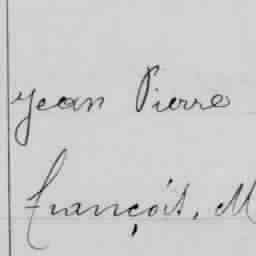 Jean Pierre
François, M